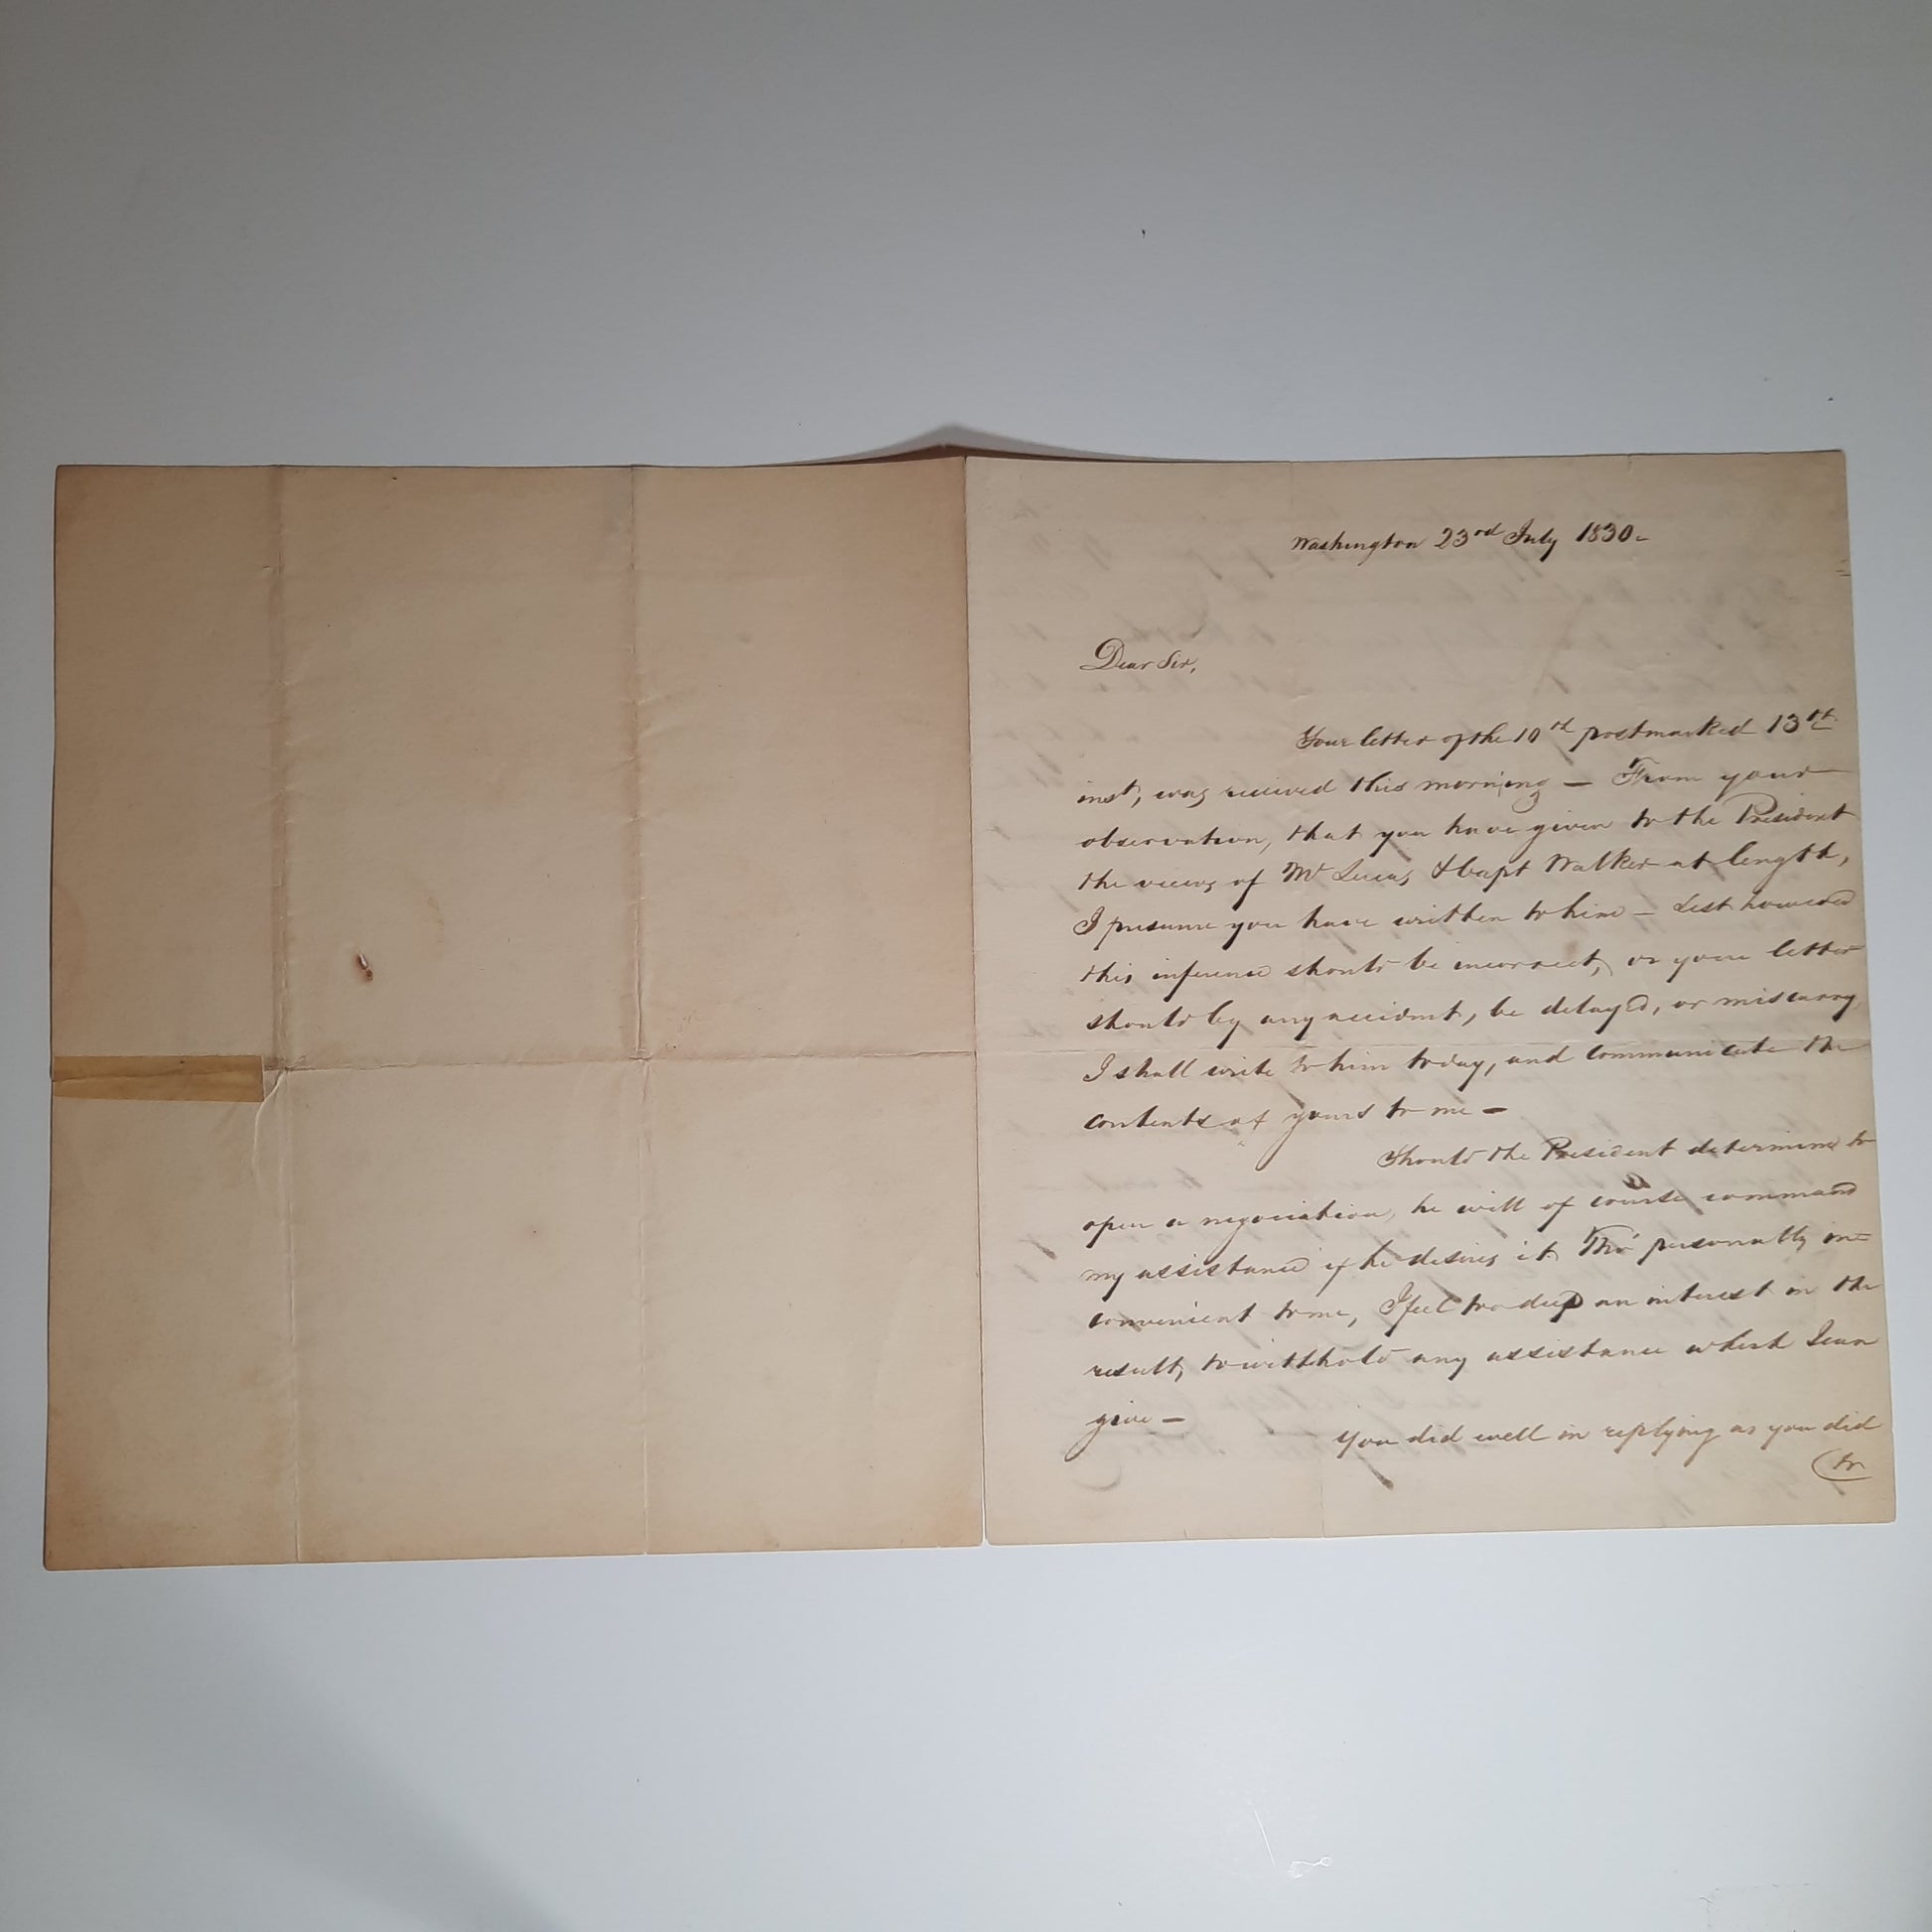 Washington 23rd July 1830-
Dear Sir,
Your letter of the 10th postmarked 13th
inst, was received this morning - From your
observation, that you have given to the President
the views of Mr Lucas & Capt Walker at length,
I presume you have written to him - Lest however
this inference should be incorrect, or your letter
should by any accident, be delayed, or miscarry
I shall write to him today, and communicate the
contents of yours to me -
Should the President determine to
open a negociation, he will of course command
my assistance if he desires it. Tho' personally in=
convenient to me, I feel too deep an interest in the
result, to withhold any assistance which I can
give -
You did well in replying as you did
(to